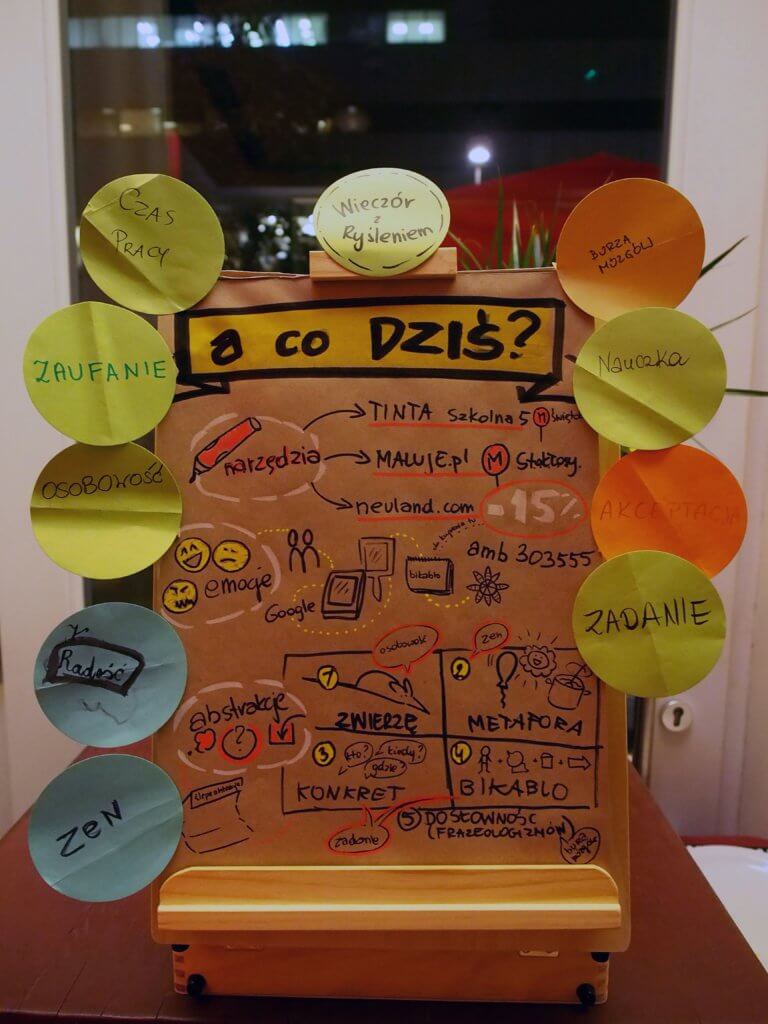 Wieczór
z
Ryśleniem
CZAS
PRACY
ZAUFANIE
OSOBOWOŚĆ
Radość
ZEN
BURZA
MÓZGÓW
Nauczka
AKCEPTACJA
ZADANIE
a co DZIŚ?
narzędzia
TINTA Szkolna 5 M
MALUJE.pl M
neuland.com -15%
amb 303555
emocje
Google
bikablo
abstrakcje
?
osobowość
1
ZWIERZĘ
zen
2
METAFORA
3
kto? kiedy?
gdzie?
KONKRET
4
BIKABLO
zadanie
5 DOSŁOWNOŚĆ
(FRAZEOLOGIZMÓW)
burza
mózgów